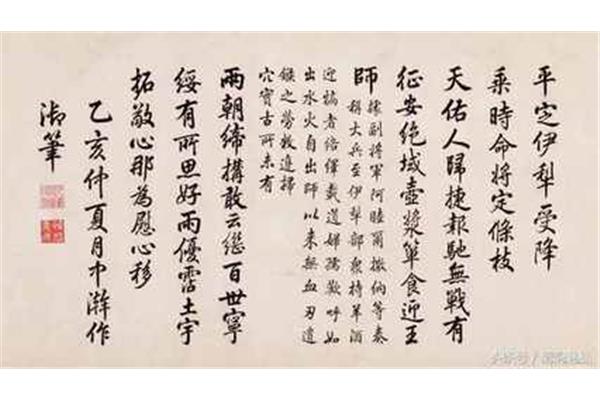 平定伊犁受降
乘時命將定條枝
天佑人歸捷報馳無戰有
征安絕域壺漿簞食迎王
師
據副將軍阿睦爾撒納等奏
稱大兵至伊犁部衆持羊酒
迎犒者絡繹載道婦孺歡呼如
出水火自出師以來無血刃遺
鏃之勞敉邊掃
穴實古所未有
兩朝締構敢云繼百世寧
綏有所思好雨優霑土宇
拓敬心那為慰心移
乙亥仲夏月中澣作
御筆
头条号